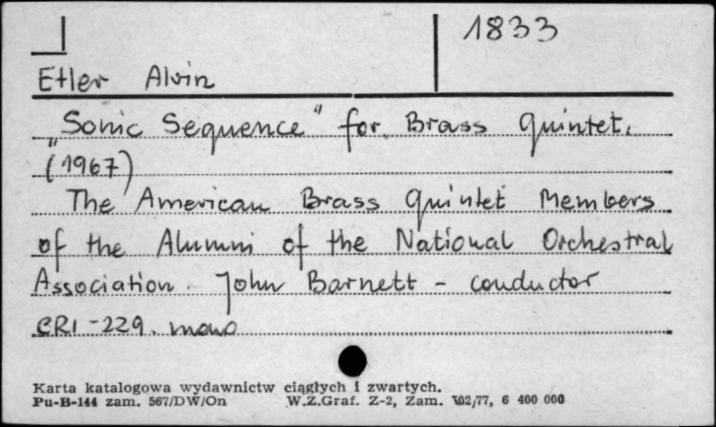 1833
Etler Alvin
„Sonic Sequence" for Brass Quintet.
(1967)
The American Brass Quintet Members
of the Alumni of the National Orchestral
Association. John Barnett - conductor
CRI-229. mono
Karta katalogowa wydawnictw ciągłych i zwartych.
Pu-B-144 zam. 567/DW/On W.Z.Graf. Z-2, Zam. 102/77, 6 400 000